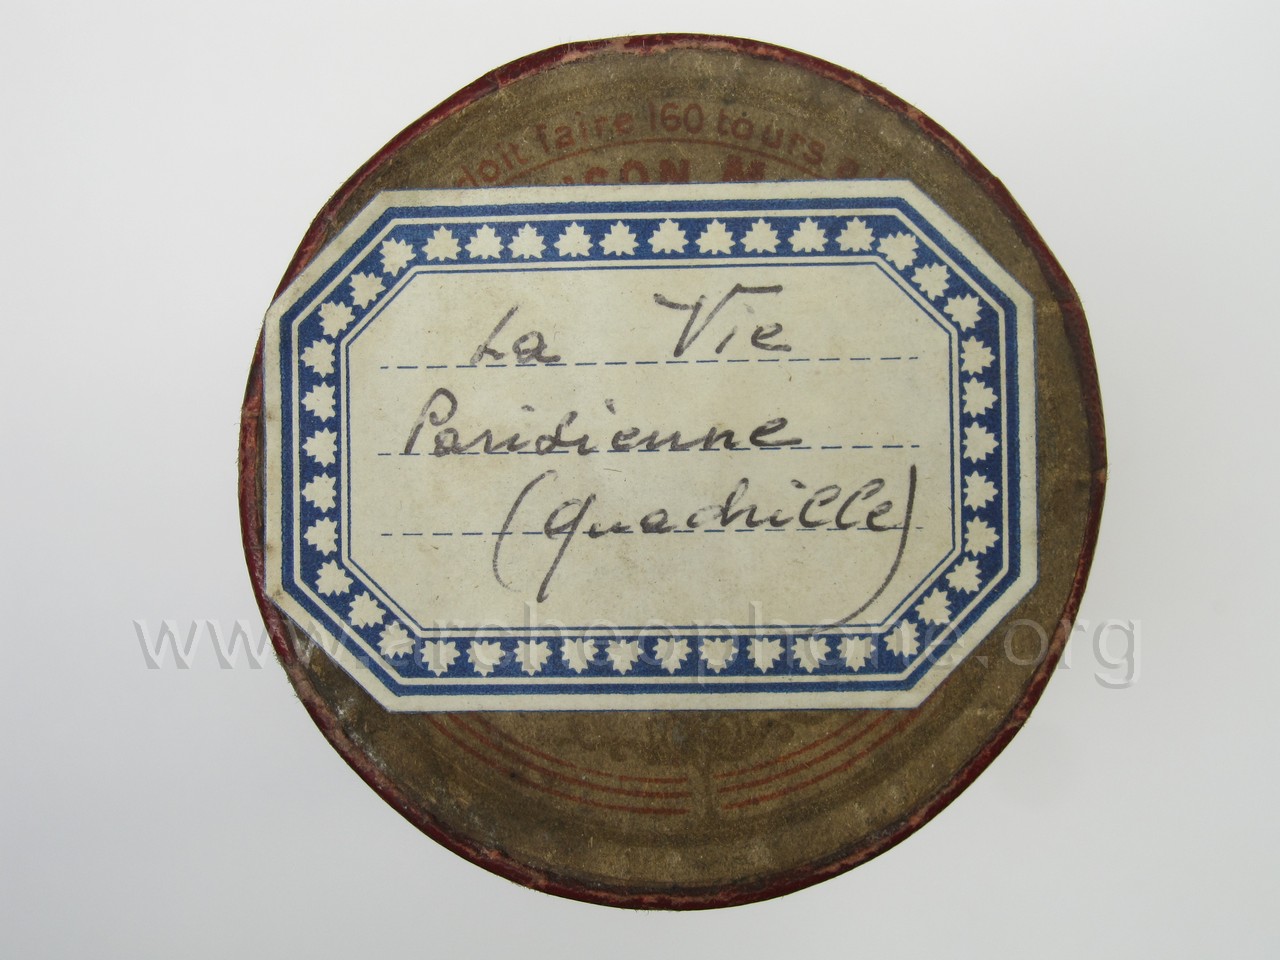 doit faire 160 tours
La Vie
Parisienne
(quadrille)
www.archeophone.org